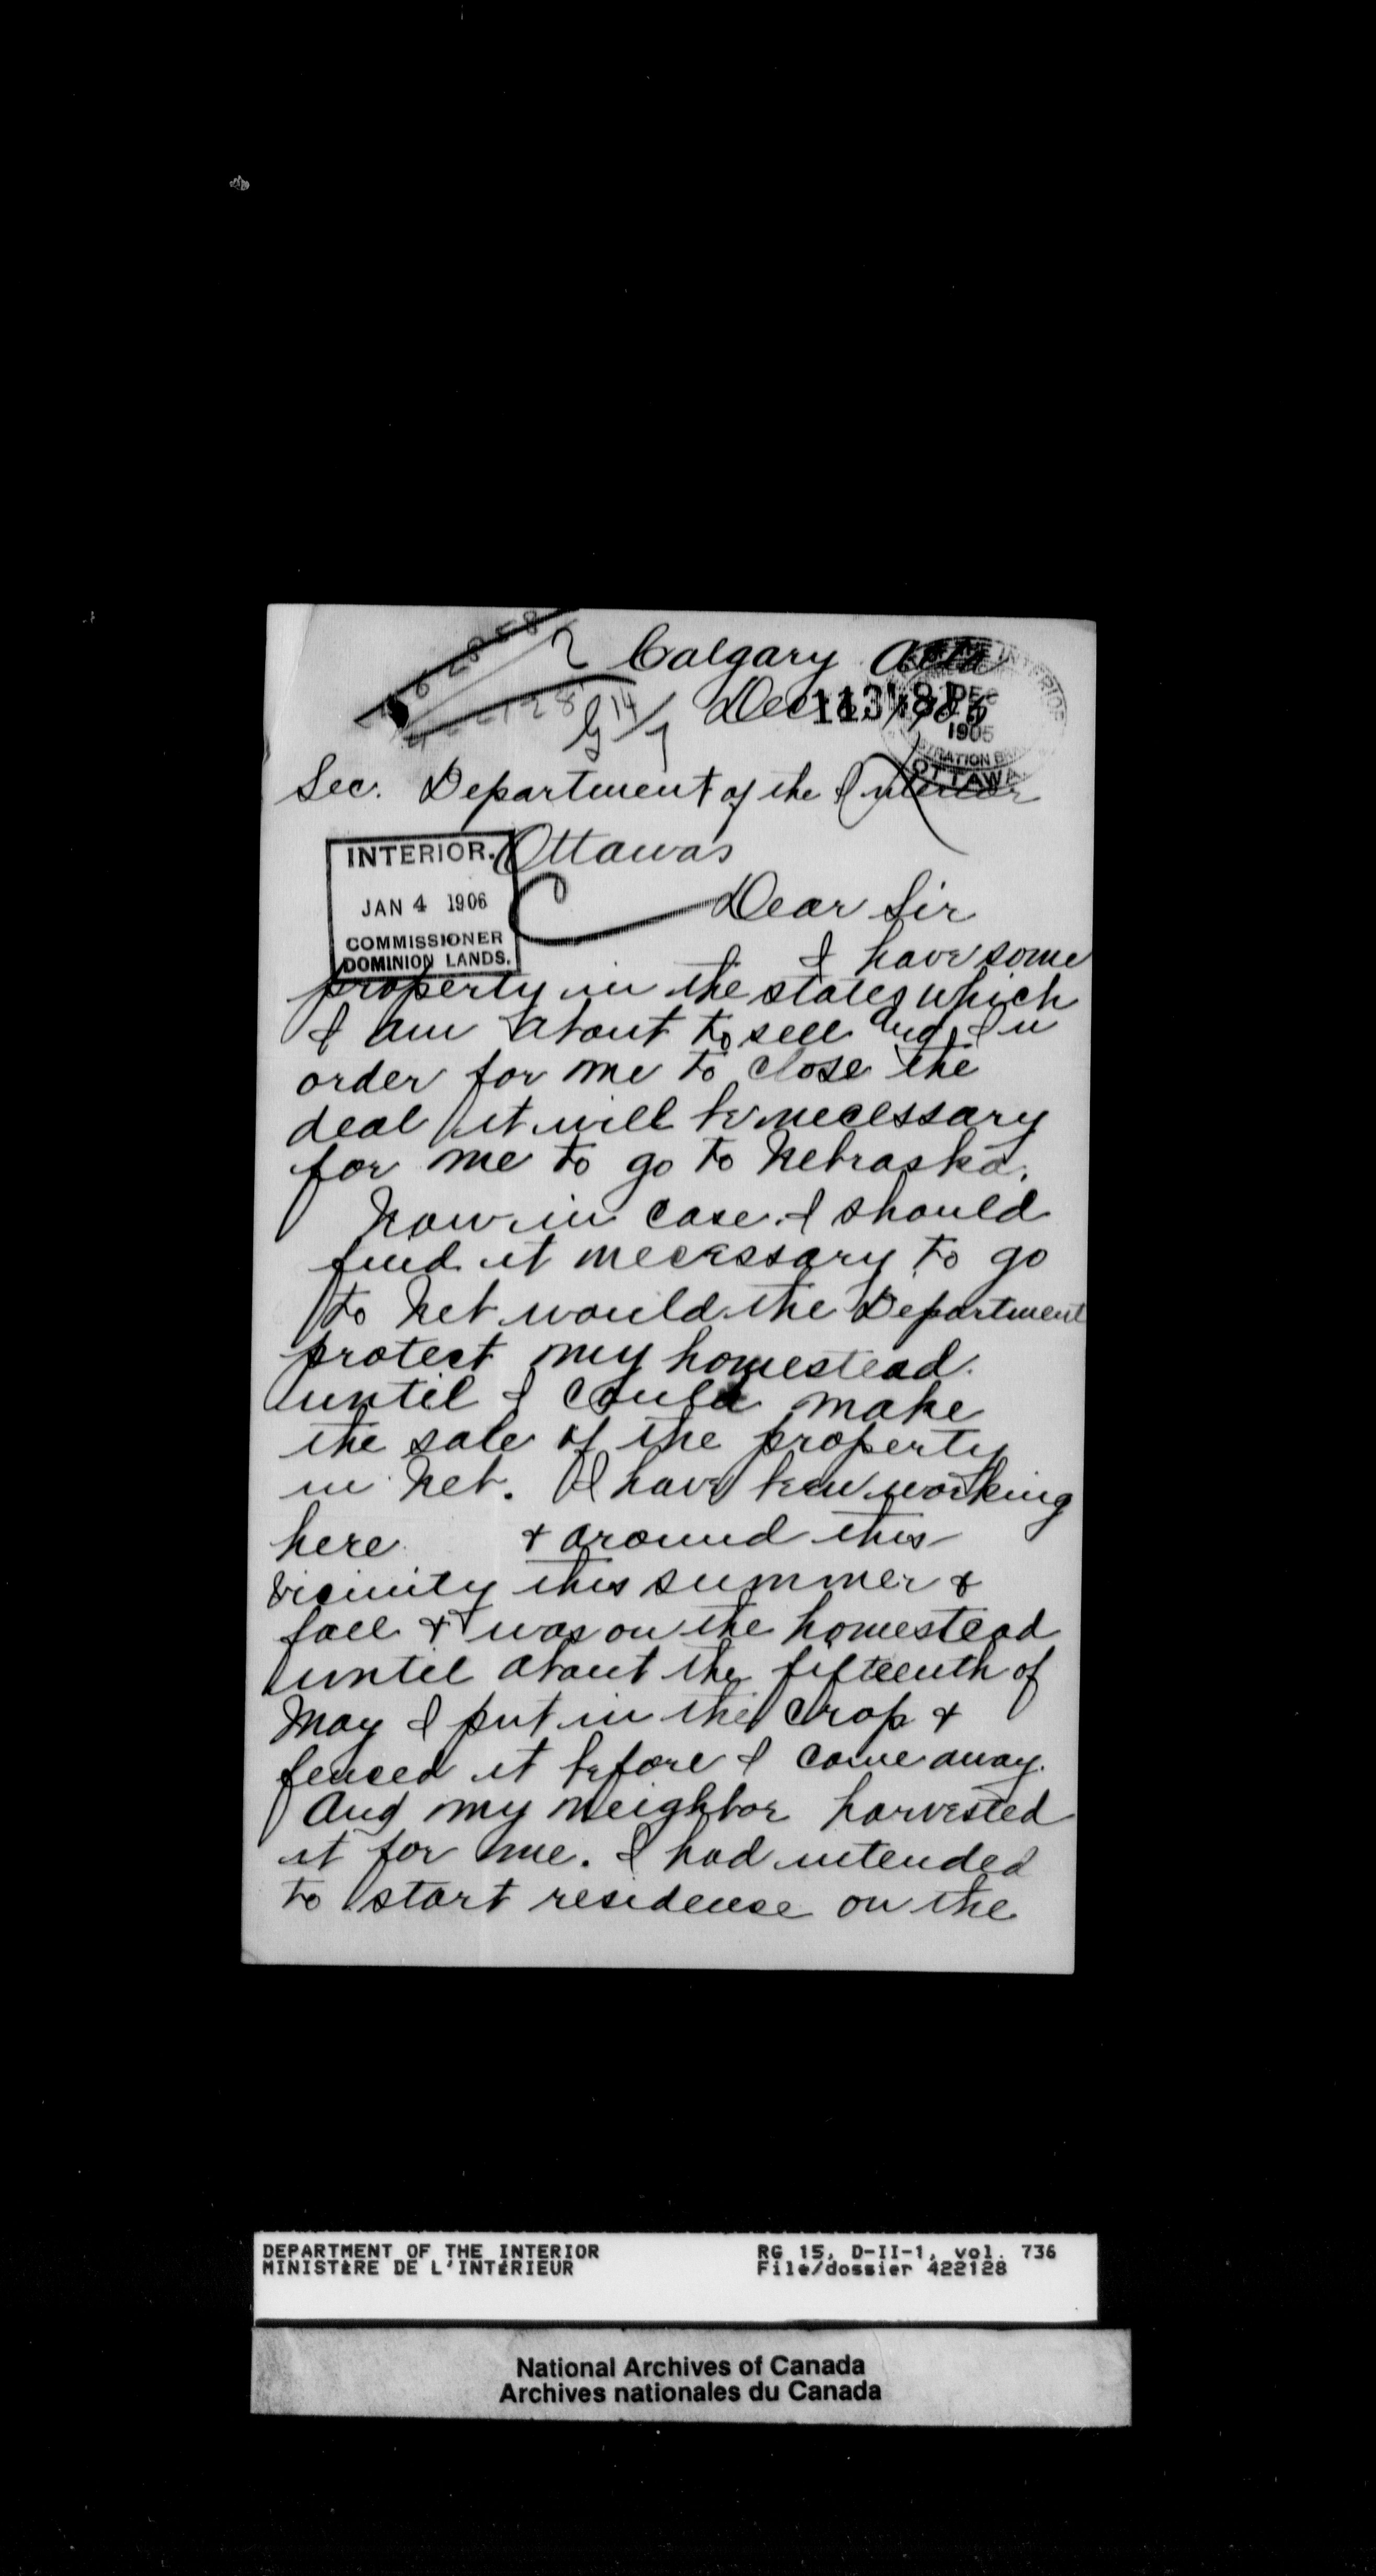 Calgary Alta
Dec
1905
Sec. Department of the Interior
Ottawa
INTERIOR.
JAN 4 1906
COMMISSIONER
DOMINION LANDS.
Dear Sir
I have some
property in the states which
I am about to sell and, In
order for me to close the
deal it will be necessary
for me to go to Nebraska.
Now in case I should
find it necessary to go
to Neb would the Department
protect my homestead.
until I could make
the sale of the property
in Neb. I have been working
here & around this
vicinity this summer &
fall & was on the homestead
until about the fifteenth of
May I put in the crop &
fenced it before I came away.
And my neighbor harvested
it for me. I had intended
to start residense on the
DEPARTMENT OF THE INTERIOR RG 15, D-II-1, vol. 736
MINISTÈRE DE L'INTÉRIEUR File/dossier 422128
National Archives of Canada
Archives nationales du Canada